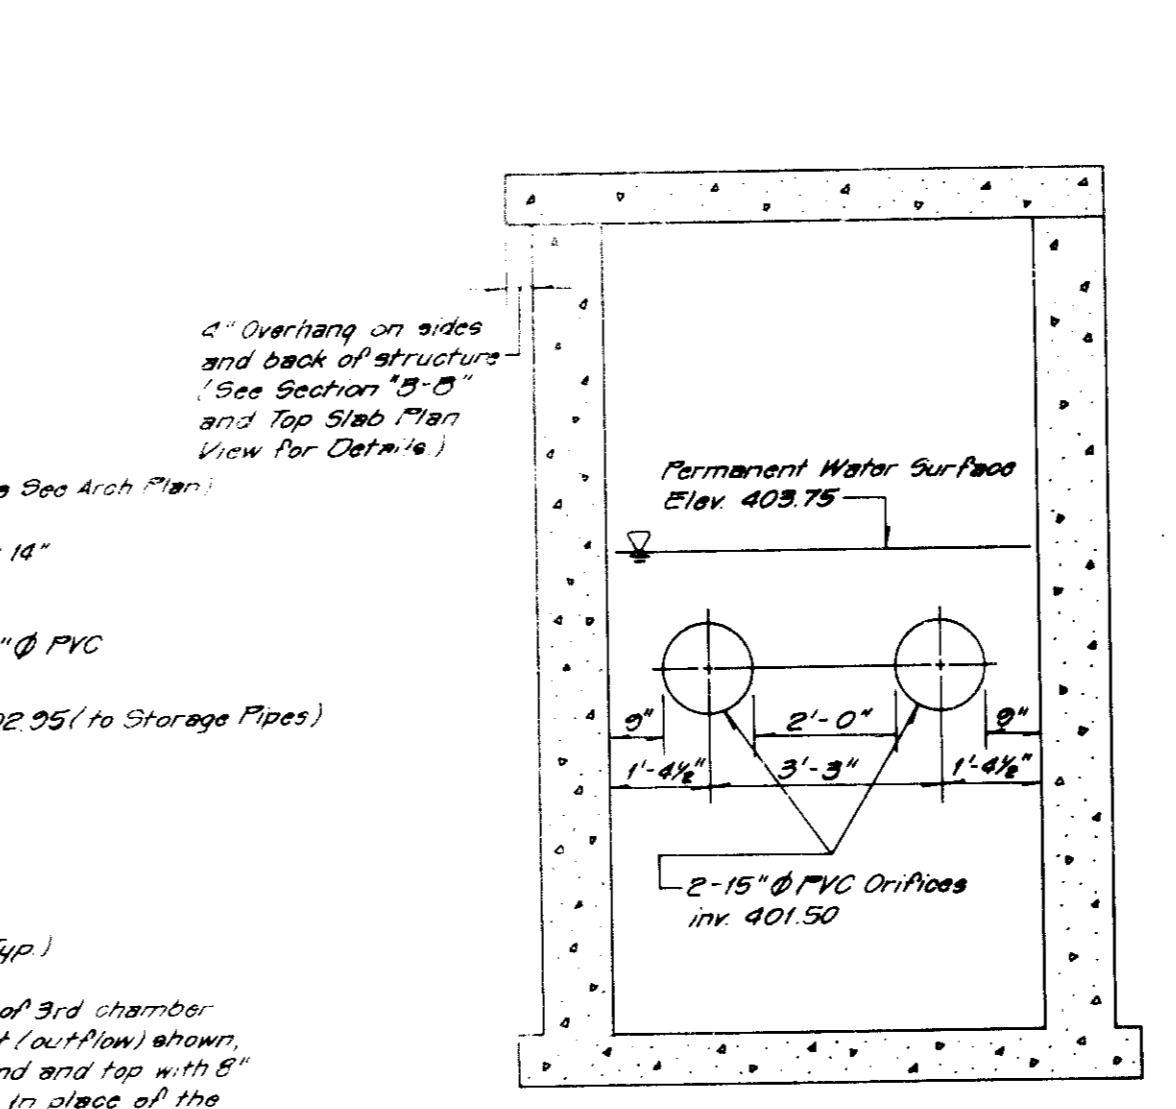 4" Overhang on sides
and back of structure
(See Section "B-B"
and Top Slab Plan
View for Details.)
See Arch Plan)
14"
"Ø PVC
02.95 (to Storage Pipes)
Typ.)
of 3rd chamber
(outflow) shown,
and top with 8"
in place of the
Permanent Water Surface
Elev. 403.75
9" 2'-0" 9"
1'-4½" 3'-3" 1'-4½"
2-15" Ø PVC Orifices
inv. 401.50